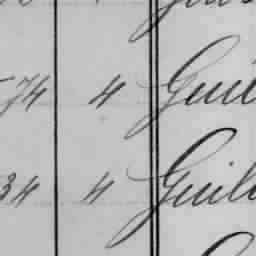 74 4 Guil
34 4 Guil